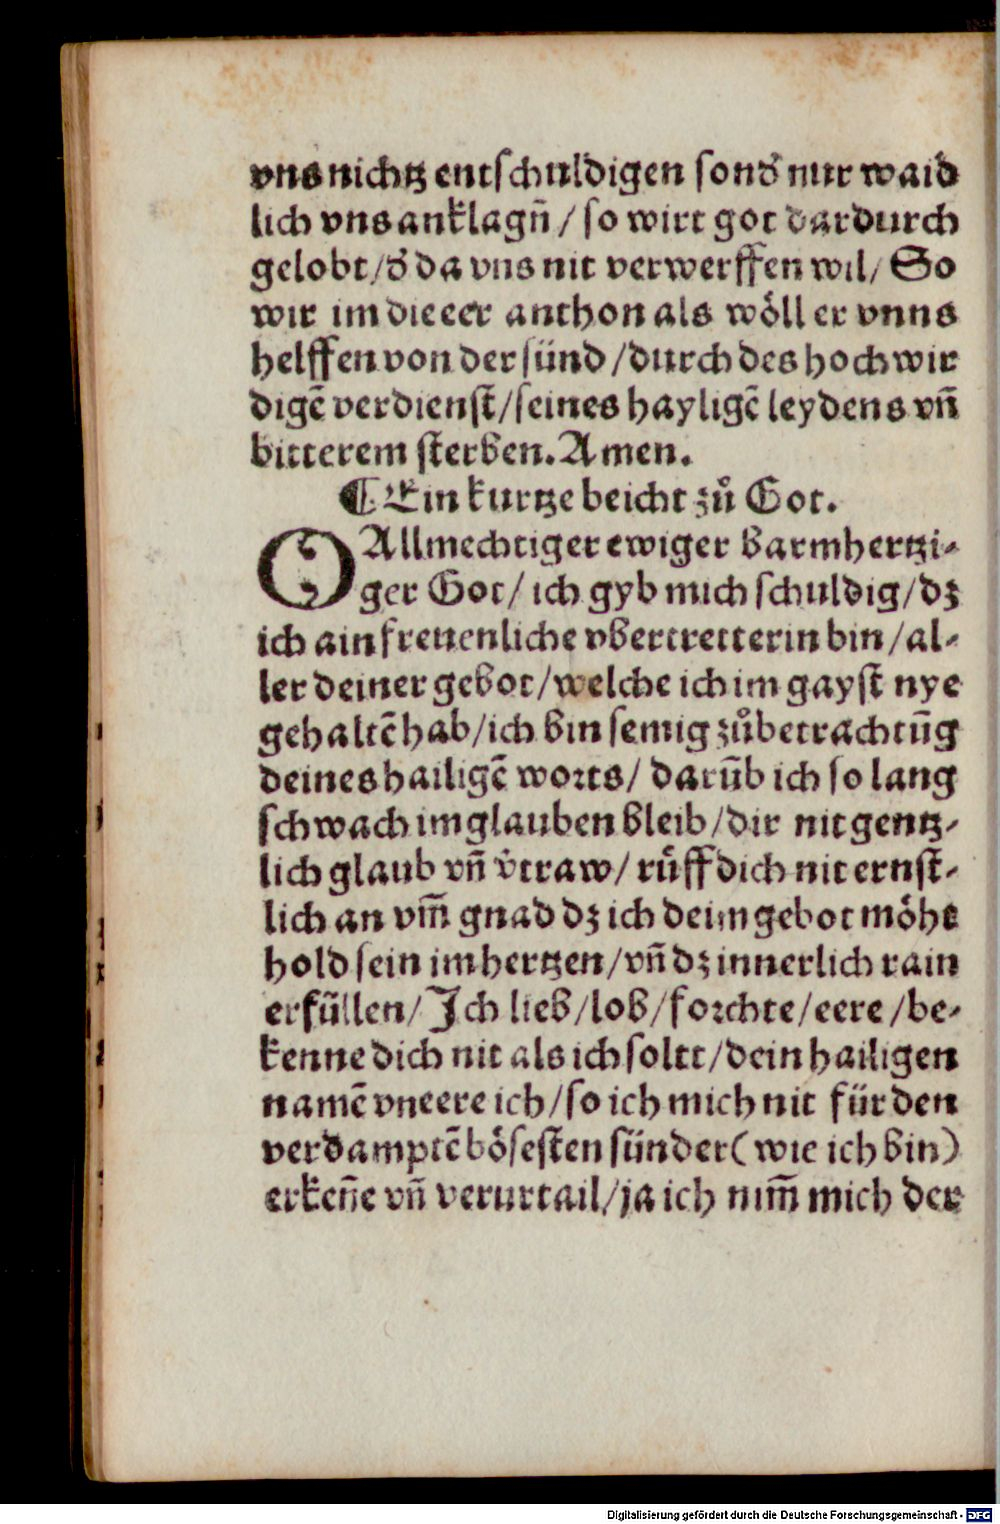 vns nichtz entschuldigen sond̕ nur waid
lich vns anklagn̄ / so wirt got dardurch
gelobt / d̕ da vns nit verwerffen wil / So
wir im die eer anthon als wöll er vnns
helffen von der sünd / durch des hochwir
digē verdienst / seines hayligē leydens vn̄
bitterem sterben. Amen.
¶ Ein kurtze beicht zů Got.
O Allmechtiger ewiger barmhertzi-
ger Got / ich gyb mich schuldig / dz
ich ain freuenliche vbertretterin bin / al-
ler deiner gebot / welche ich im gayst nye
gehaltē hab / ich bin semig zůbetrachtūg
deines hailigē worts / darūb ich so lang
schwach im glauben bleib / dir nit gentz-
lich glaub vn̄ v̕traw / růff dich nit ernst-
lich an vm̄ gnad dz ich deim gebot möht
hold sein im hertzen / vn̄ dz innerlich rain
erfüllen / Ich lieb / lob / forchte / eere / be-
kenne dich nit als ich soltt / dein hailigen
namē vneere ich / so ich mich nit für den
verdamptē bösesten sünder (wie ich bin)
erken̄e vn̄ verurtail / ja ich nim̄ mich der
Digitalisierung gefördert durch die Deutsche Forschungsgemeinschaft - DFG